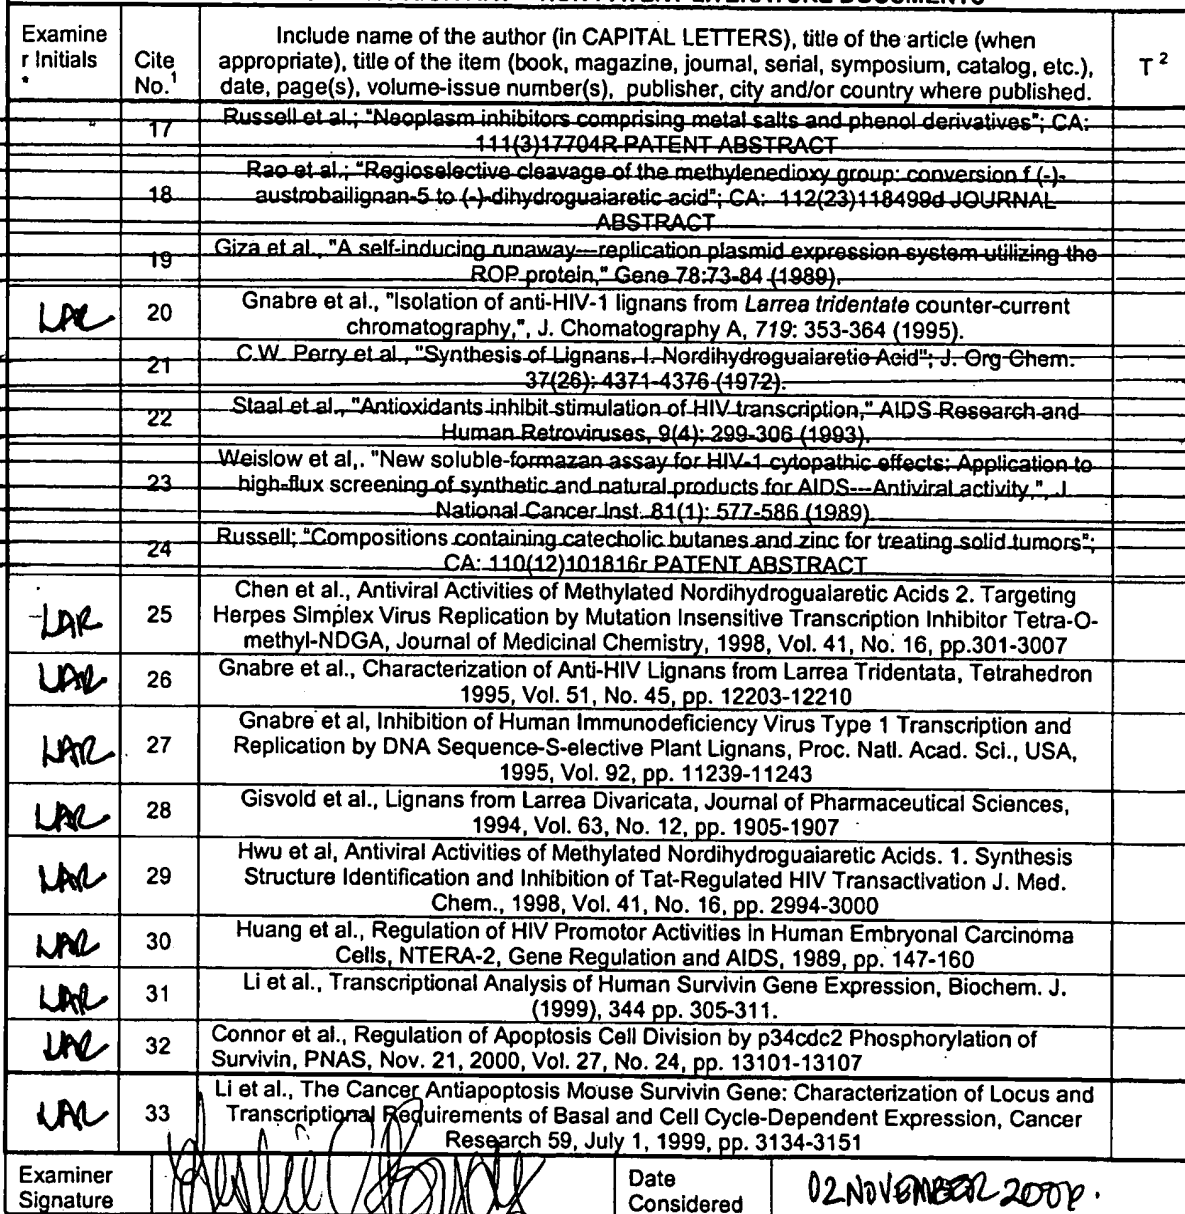 Examine
r Initials
*
Cite
No.1
Include name of the author (in CAPITAL LETTERS), title of the article (when
appropriate), title of the item (book, magazine, journal, serial, symposium, catalog, etc.),
date, page(s), volume-issue number(s), publisher, city and/or country where published.
T 2
17
Russell et al.; "Neoplasm inhibitors comprising metal salts and phenol derivatives"; CA:
111(3)17704R PATENT ABSTRACT
18
Rao et al.; "Regioselective cleavage of the methylenedioxy group: conversion f (-)-
austrobailignan-5 to (-)-dihydroguaiaretic acid"; CA: 112(23)118499d JOURNAL
ABSTRACT
19
Giza et al., "A self-inducing runaway—replication plasmid expression system utilizing the
ROP protein," Gene 78:73-84 (1989).
LAR
20
Gnabre et al., "Isolation of anti-HIV-1 lignans from Larrea tridentate counter-current
chromatography,", J. Chomatography A, 719: 353-364 (1995).
21
C.W. Perry et al., "Synthesis of Lignans. I. Nordihydroguaiaretic Acid"; J. Org Chem.
37(26): 4371-4376 (1972).
22
Staal et al., "Antioxidants inhibit stimulation of HIV transcription," AIDS Research and
Human Retroviruses, 9(4): 299-306 (1993).
23
Weislow et al,. "New soluble-formazan assay for HIV-1 cytopathic effects: Application to
high-flux screening of synthetic and natural products for AIDS---Antiviral activity,", J.
National Cancer Inst. 81(1): 577-586 (1989).
24
Russell; "Compositions containing catecholic butanes and zinc for treating solid tumors";
CA: 110(12)101816r PATENT ABSTRACT
LAR
25
Chen et al., Antiviral Activities of Methylated Nordihydrogualaretic Acids 2. Targeting
Herpes Simplex Virus Replication by Mutation Insensitive Transcription Inhibitor Tetra-O-
methyl-NDGA, Journal of Medicinal Chemistry, 1998, Vol. 41, No. 16, pp.301-3007
LAR
26
Gnabre et al., Characterization of Anti-HIV Lignans from Larrea Tridentata, Tetrahedron
1995, Vol. 51, No. 45, pp. 12203-12210
LAR
27
Gnabre et al, Inhibition of Human Immunodeficiency Virus Type 1 Transcription and
Replication by DNA Sequence-S-elective Plant Lignans, Proc. Natl. Acad. Sci., USA,
1995, Vol. 92, pp. 11239-11243
LAR
28
Gisvold et al., Lignans from Larrea Divaricata, Journal of Pharmaceutical Sciences,
1994, Vol. 63, No. 12, pp. 1905-1907
LAR
29
Hwu et al, Antiviral Activities of Methylated Nordihydroguaiaretic Acids. 1. Synthesis
Structure Identification and Inhibition of Tat-Regulated HIV Transactivation J. Med.
Chem., 1998, Vol. 41, No. 16, pp. 2994-3000
LAR
30
Huang et al., Regulation of HIV Promotor Activities in Human Embryonal Carcinoma
Cells, NTERA-2, Gene Regulation and AIDS, 1989, pp. 147-160
LAR
31
Li et al., Transcriptional Analysis of Human Survivin Gene Expression, Biochem. J.
(1999), 344 pp. 305-311.
LAR
32
Connor et al., Regulation of Apoptosis Cell Division by p34cdc2 Phosphorylation of
Survivin, PNAS, Nov. 21, 2000, Vol. 27, No. 24, pp. 13101-13107
LAR
33
Li et al., The Cancer Antiapoptosis Mouse Survivin Gene: Characterization of Locus and
Transcriptional Requirements of Basal and Cell Cycle-Dependent Expression, Cancer
Research 59, July 1, 1999, pp. 3134-3151
Examiner
Signature
Date
Considered
02 NOVEMBER